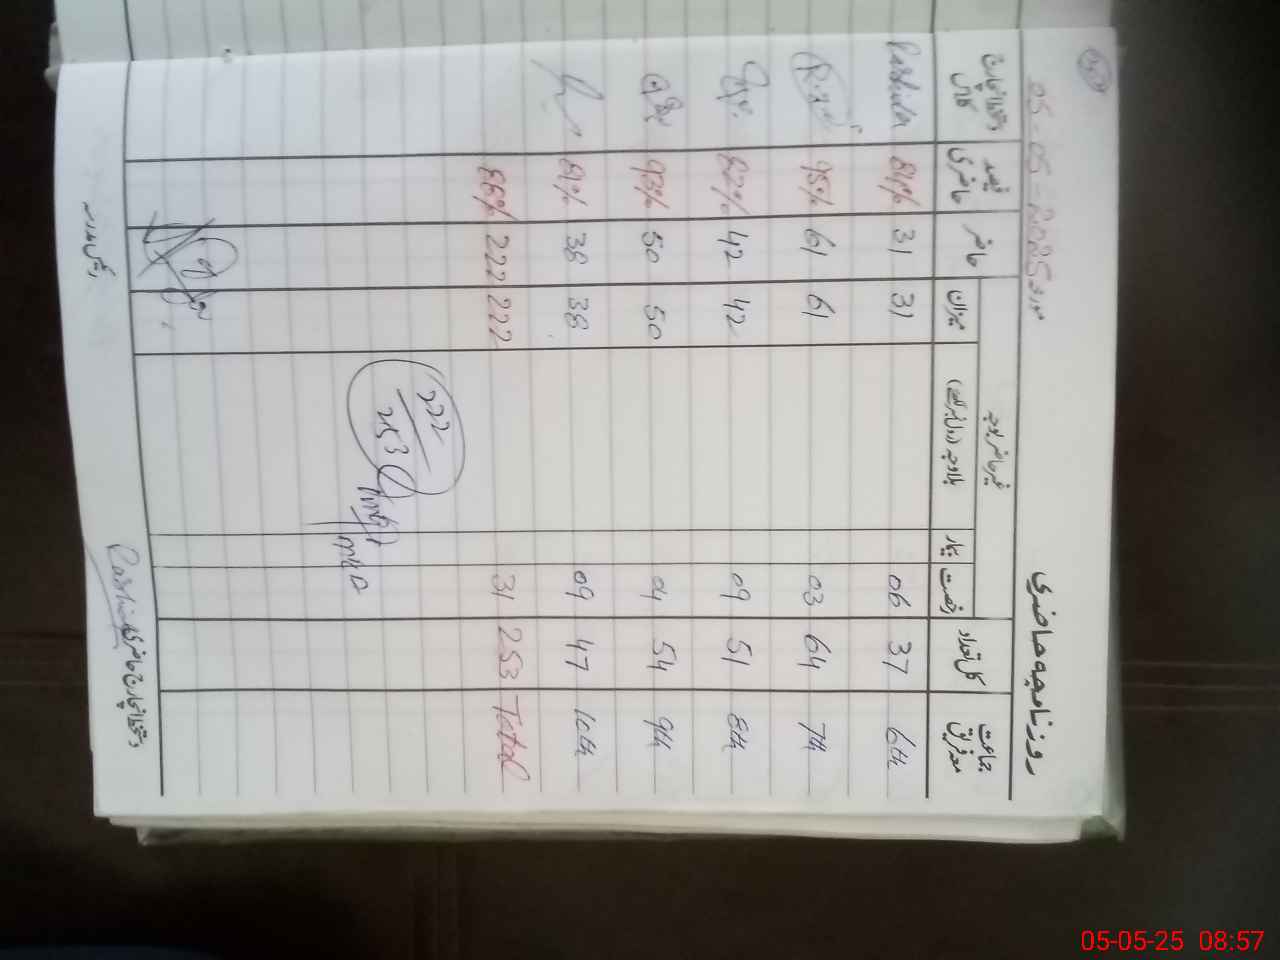 روزنامچہ حاضری
مورخہ 05-05-2025
جماعت معہ فریق کل تعداد غیر حاضر بوجہ میزان حاضر فیصد حاضری دستخط انچارج کلاس
رخصت بیمار بلاوجہ (رول نمبر لکھیے)
6th 37 06 31 31 84% Rashida
7th 64 03 61 61 95%
8th 51 09 42 42 82%
9th 54 04 50 50 93%
10th 47 09 38 38 81%
Total 253 31 222 222 88%
222
253
دستخط انچارج حاضری Rashida
05-05-25 08:57